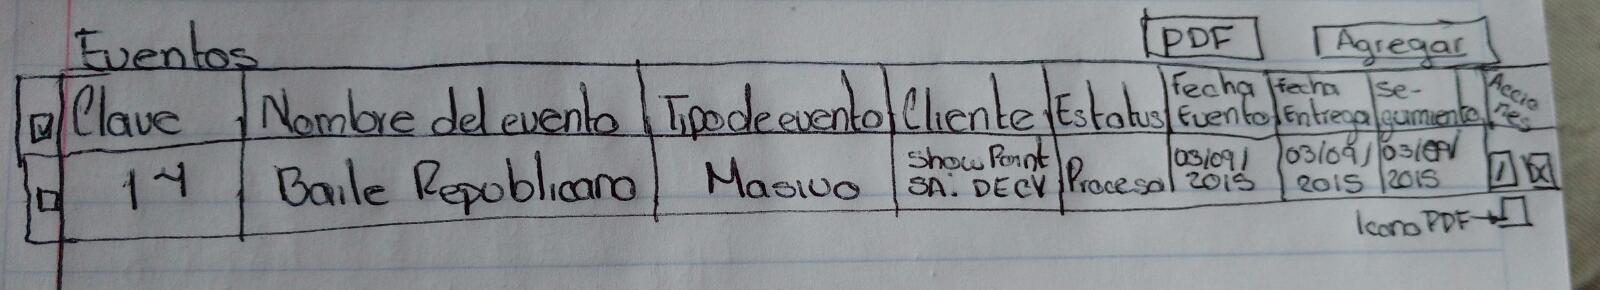 Eventos PDF Agregar
Clave Nombre del evento Tipo de evento Cliente Estatus Fecha Evento fecha Entrega Se-guimiento Accio nes
14 Baile Republicano Masivo Show Point SA. DECV Proceso 03/09/2015 03/09/2015 03/09/2015
Icono PDF